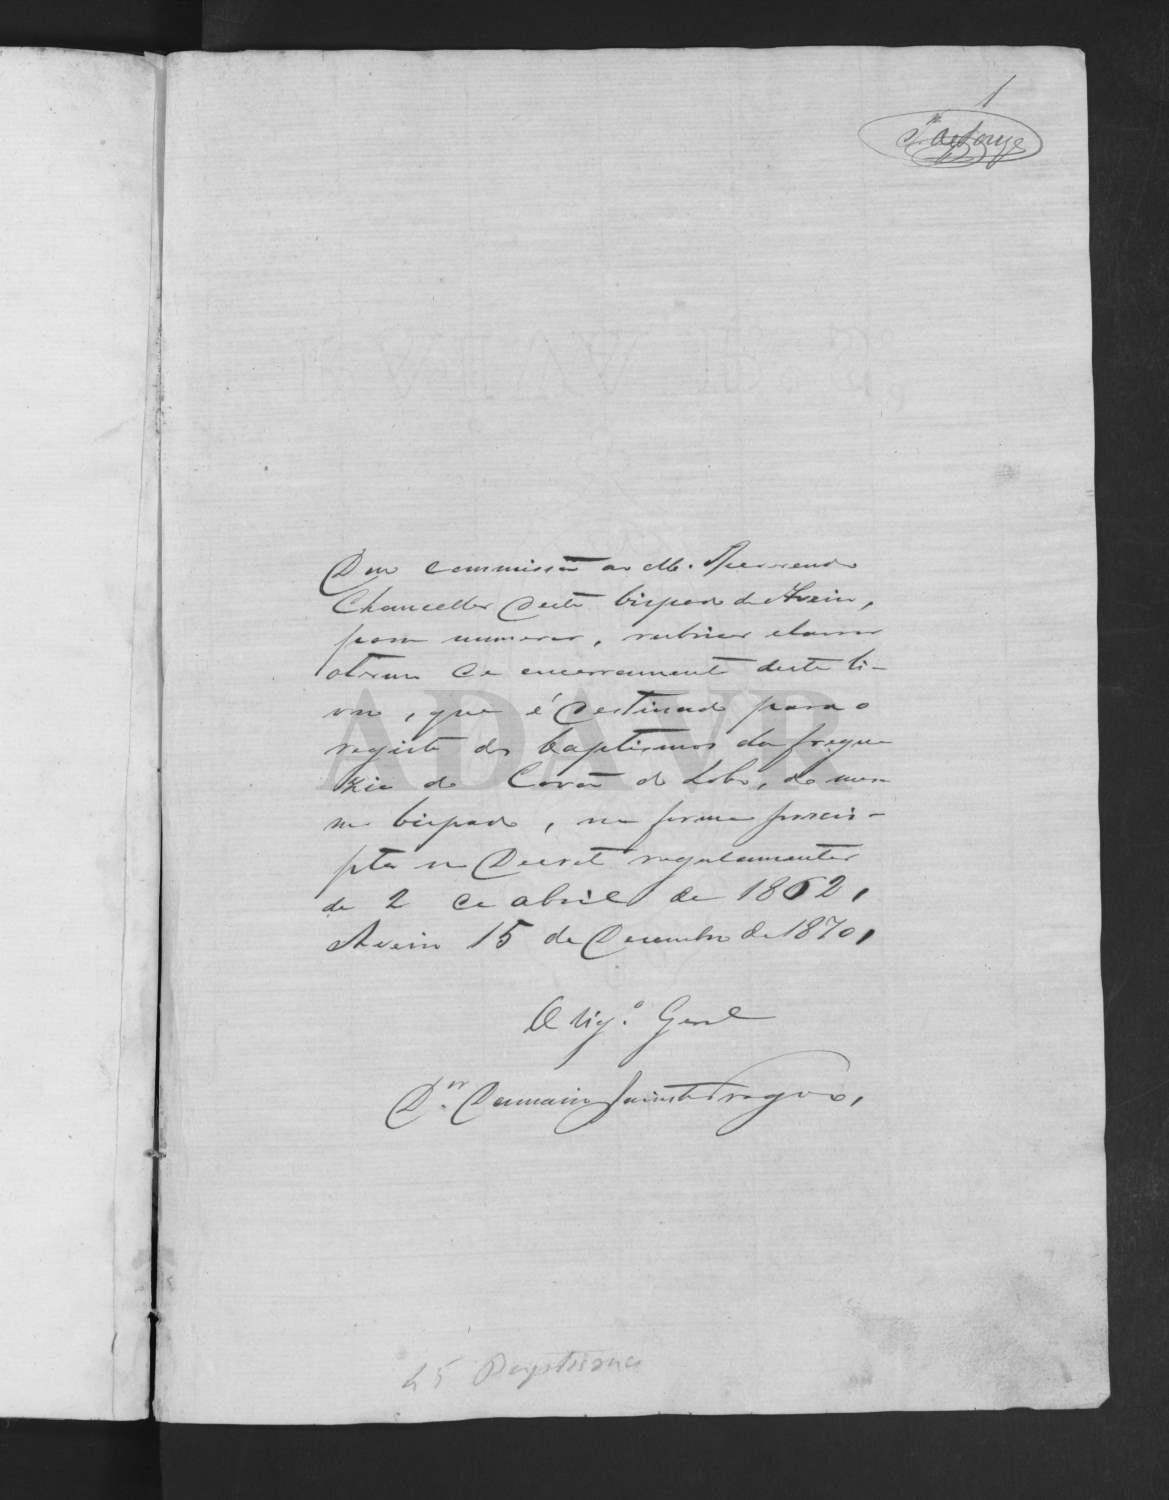 1
Dou commissão ao M. Reverendo
Chanceller deste bispado de Aveiro,
para numerar, rubricar e lavrar
o termo de encerramento deste li-
vro, que é destinado para o
registo dos baptismos da fregue
zia de Covão do Lobo, do mes
mo bispado, na forma prescri-
pta no Decreto regulamentar
de 2 de abril de 1862,
Aveiro 15 de Dezembro de 1870,
O Vig.º Geral
D.or
45 Baptismos
ADAVR